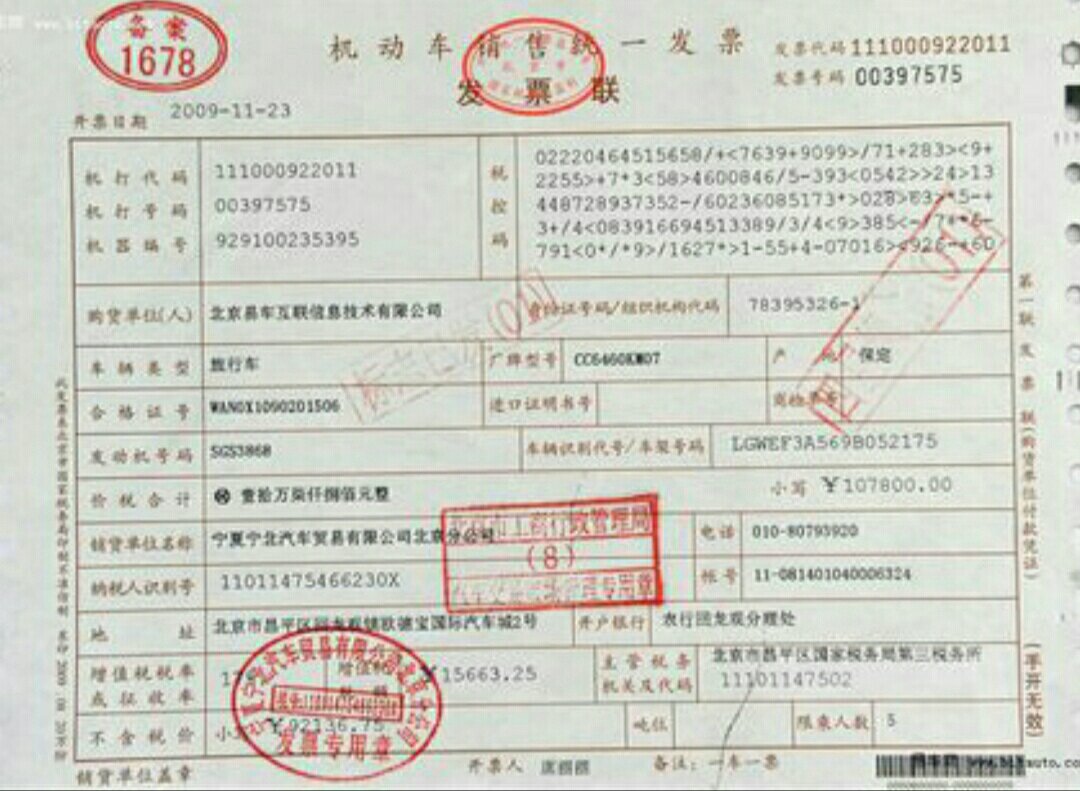 备案
1678
机动车销售统一发票
发票联
发票代码 111000922011
发票号码 00397575
开票日期 2009-11-23
机打代码 111000922011
机打号码 00397575
机器编号 929100235395
税控码
02220464515658/+<7639+9099>/71+283><9+
2255>+7*3<58>4600846/5-393<0542>>24>13
448728937352-/60236085173*>028>83>*5-+
3+/4<083916694513389/3/4<9>385<-/7**6-
791<0*/*9>/1627*>1-55+4-07016><926-+60
购货单位(人) 北京易车互联信息技术有限公司 身份证号码/组织机构代码 78395326-1
车辆类型 旅行车 厂牌型号 CC6460KM07 产地 保定
合格证号 WAN0X1090201506 进口证明书号 商检单号
发动机号码 SGS3868 车辆识别代号/车架号码 LGWEF3A569B052175
价税合计 ⊗ 壹拾万柒仟捌佰元整 小写 ￥107800.00
销货单位名称 宁夏宁北汽车贸易有限公司北京分公司 电话 010-80793920
纳税人识别号 11011475466230X 帐号 11-081401040006324
地址 北京市昌平区回龙观镇跃德宝国际汽车城2号 开户银行 农行回龙观分理处
增值税税率或征收率 增值税税额 ￥15663.25 主管税务机关及代码 北京市昌平区国家税务局第三税务所
11101147502
不含税价 小写 ￥92136.75 吨位 限乘人数 5
销货单位盖章 开票人 备注：一车一票
第一联 发票联(购货单位付款凭证)
(手开无效)
北京市工商行政管理局
(8)
发票专用章